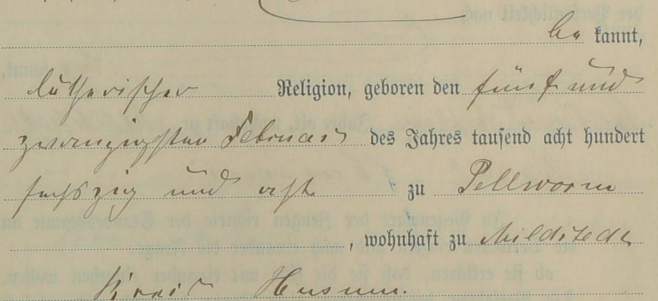 be kannt,
lutherischer Religion, geboren den fünf und
zwanzigsten Februar des Jahres tausend acht hundert
sechszig und acht zu Pellworm
, wohnhaft zu Mildstedt
Kreis Husum.